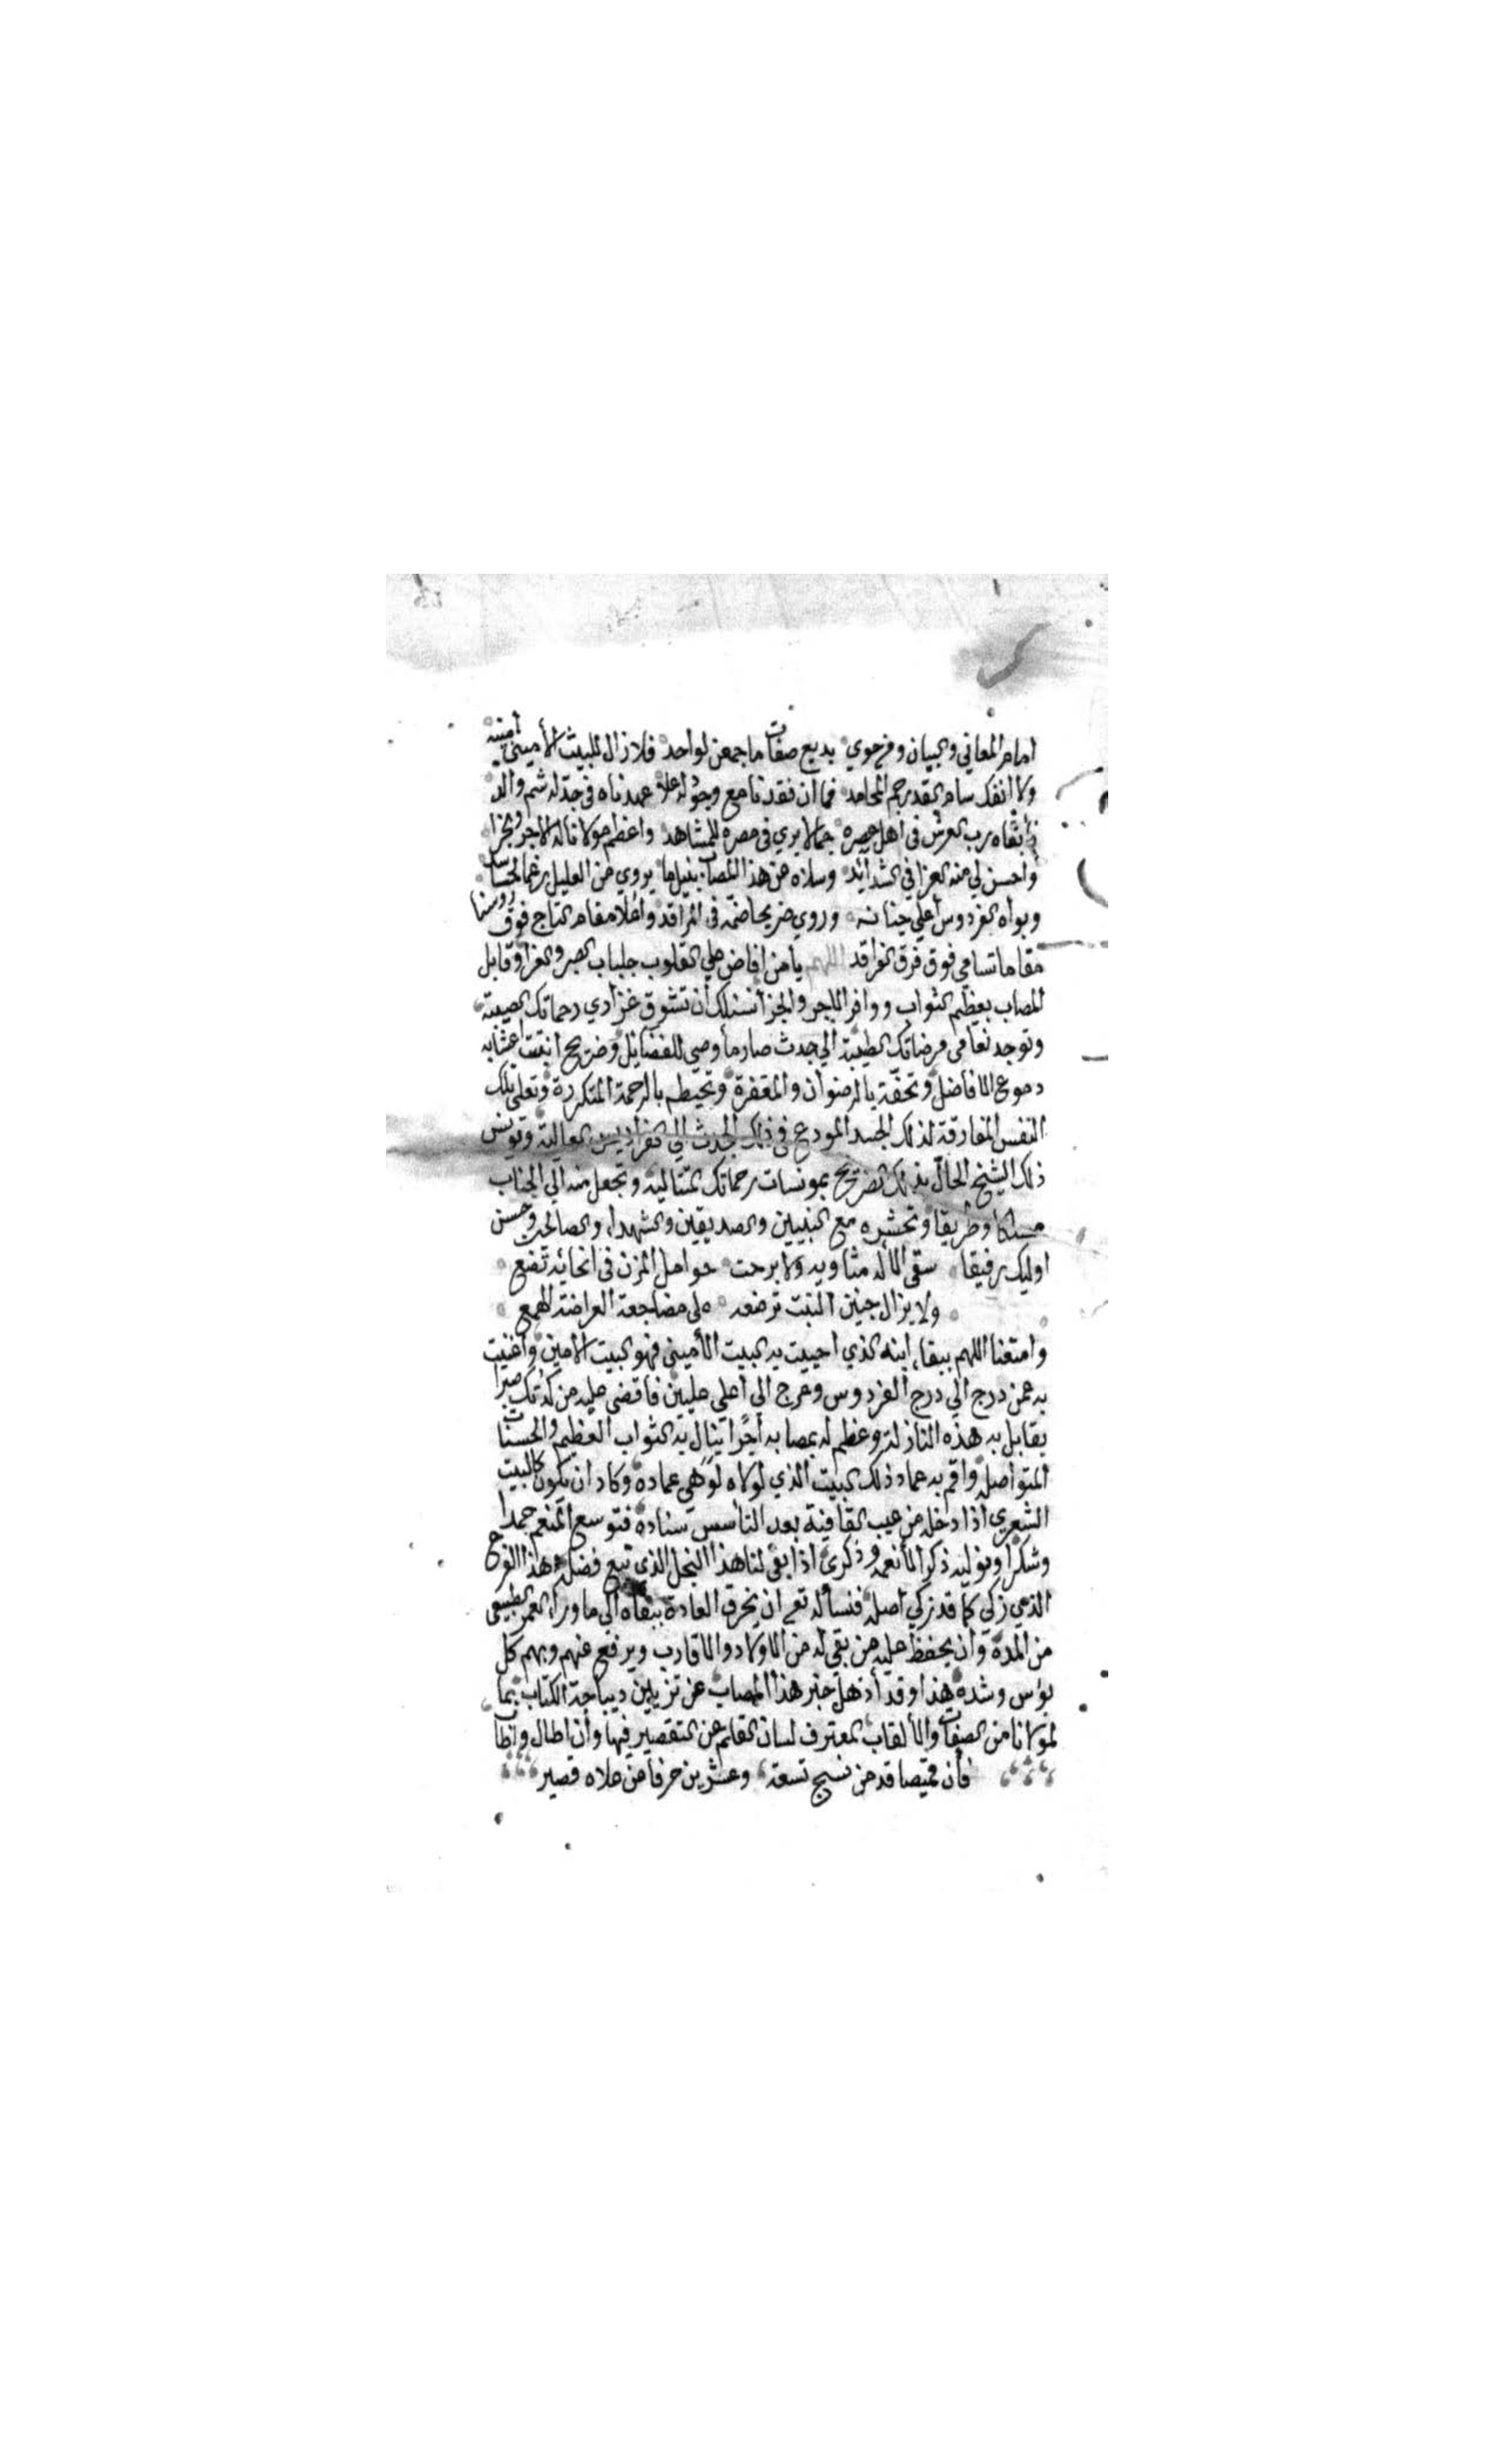 امام المعاني والبيان ومن حوي بديع صفات ما جمعن لواحد فلا زال للبيت الأميني أمينه
ولا انفك سام القدر جم المحامد فما ان فقدنا مع وجود له علا عهدناه في جد له ثم والد
وأبقاه رب العرش في اهل عصره جمالا يري في مصره للمشاهد واعظم مولانا له الاجر والجزا
واحسن لي منه العزا في الشدائد وسلاه عن هذا المصاب بنيل ما يروي من الغليل برغم الحاسد
وبواه الفردوس أعلي جنانه وروي ضريحا ضمه في المراقد واعلا مقام التاج فوق رؤسنا
مقاما تسامي فوق فرق الفراقد اللهم يا من افاض علي القلوب جلباب الصبر والعزا وقابل
المصاب بعظيم الثواب ووافر الاجر والجزا نسئلك أن تسوق غوادي رحماتك الصيبة
وتوجد نعامى مرضاتك الطيبة الي جدث صار مأوي للفضائل وضريح أنبتت اعشابه
دموع الافاضل وتحفه بالرضوان والمغفرة وتحيطه بالرحمة المتكررة وتعلي تلك
النفس المفارقة لذلك الجسد المودع في ذلك الجدث الي الفراديس العالية وتونس
ذلك الشيخ الحال بذلك الضريح بمونسات رحماتك المتتالية وتجعل منه الي الجناب
مسلكا وطريقا وتحشره مع النبيين والصديقين والشهداء والصالحين وحسن
اوليك رفيقا سقي الاله مثاويه ولا برحت حوامل المزن في انحائه تضع
ولا يزال جنين النبت ترضعه علي مضاجعه العراضة الهمع
وامتعنا اللهم ببقاء ابنه الذي احييت به البيت الأميني فهو البيت الامين وأغنيت
به عمن درج الي درج الفردوس وعرج الي أعلي عليين فاقضي عليه من لدنك صبرا
يقابل به هذه النازلة وعظم له بمصابه أجرا ينال به الثواب العظيم والحسنات
المتواصله واقم به عماد ذلك البيت الذي لولاه لوهي عماده وكاد ان يكون كالبيت
الشعري اذا دخله من عيب القافية بعد التأسيس سناده فتوسع المنعم حمدا
وشكرا ونوليه ذكرا لأنعمه وذكري اذ ابقي لنا هذا النجل الذي تبع فضله وهذا الفرع
الذي زكي كما قد زكي أصله فنسأله تع ان يخرق العادة ببقاه الي ما وراء العمر الطبيعي
من المدة وأن يحفظ عليه من بقي له من الاولاد والاقارب ويرفع عنهم وبهم كل
بؤس وشده هذا وقد أذهل خبر هذا المصاب عن تزيين ديباجة الكتاب بما
لمولانا من الصفات والألقاب المعترف لسان القلم عن التقصير فيها وأن اطال واطاب
فأن قميصا قد من نسج تسعة وعشرين حرفا من علاه قصير